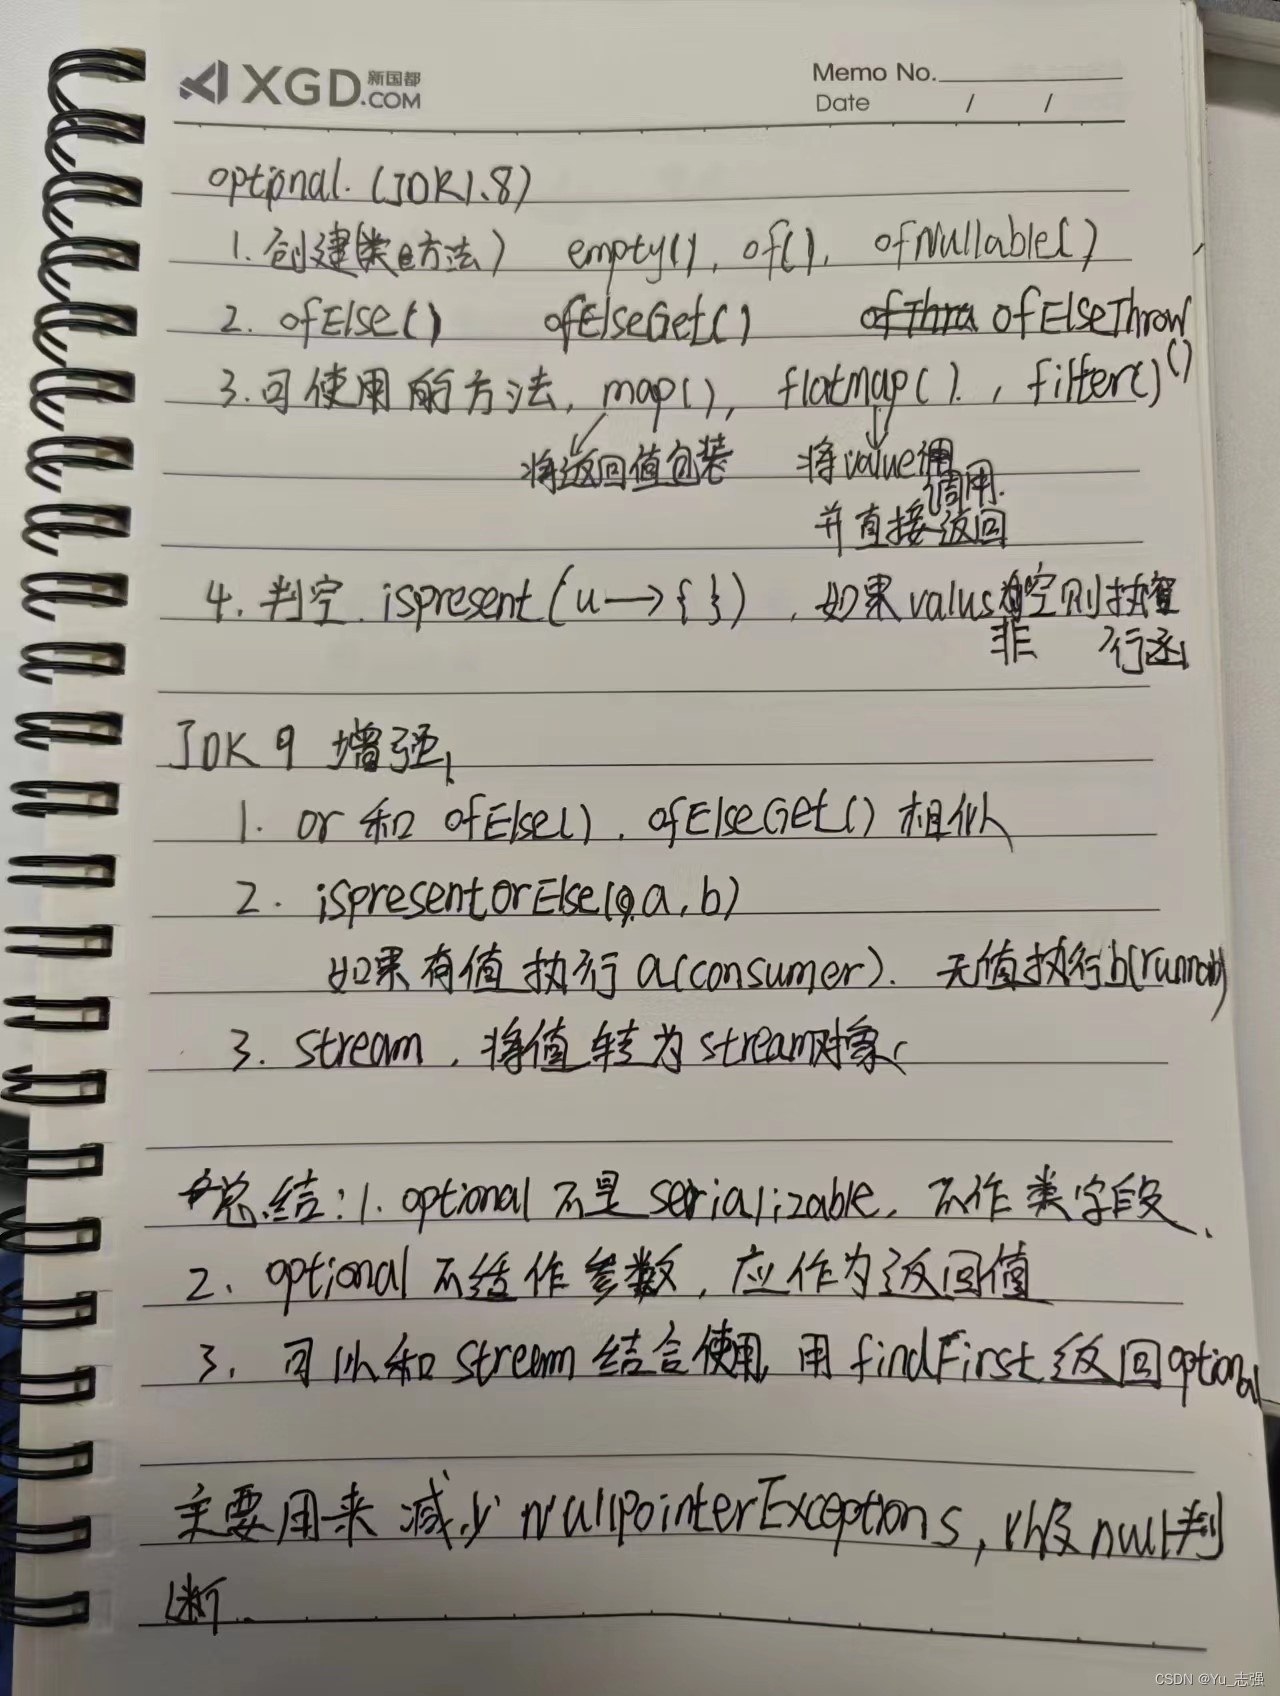 XGD 新国都 .COM
Memo No.
Date / /
optional. (JDK1.8)
1. 创建(类方法) empty(), of(), ofNullable()
2. ofElse() ofElseGet() ofElseThrow()
3. 可使用的方法, map(), flatmap(), filter()
将返回值包装 将value调用
并直接返回
4. 判空. ispresent(u→{ }), 如果value非空则执行函
JDK9 增强,
1. or 和 ofElse(), ofElseGet() 相似
2. ispresentorElse(a, b)
如果有值执行 a(consumer). 无值执行b(runnab)
3. stream, 将值转为stream对象
总结: 1. optional 不是 serializable, 不作类字段、
2、optional 不作参数, 应作为返回值
3、可以和 stream 结合使用, 用 findFirst 返回optional
主要用来减少 NullpointerExceptions, 以及 null判
断.
CSDN @Yu_志强